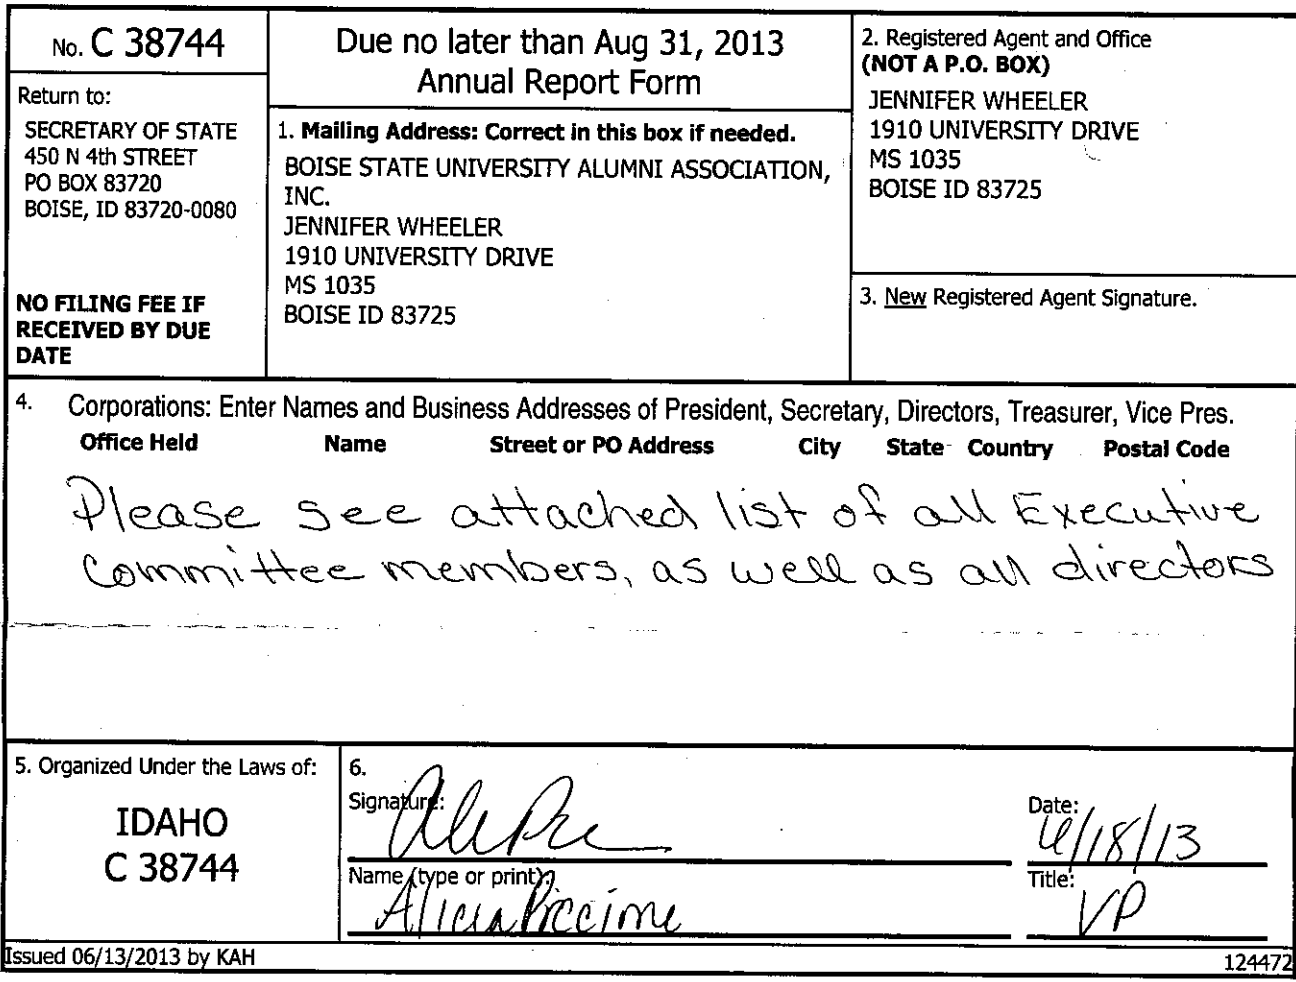 No. C 38744
Return to:
SECRETARY OF STATE
450 N 4th STREET
PO BOX 83720
BOISE, ID 83720-0080
NO FILING FEE IF
RECEIVED BY DUE
DATE
Due no later than Aug 31, 2013
Annual Report Form
1. Mailing Address: Correct in this box if needed.
BOISE STATE UNIVERSITY ALUMNI ASSOCIATION,
INC.
JENNIFER WHEELER
1910 UNIVERSITY DRIVE
MS 1035
BOISE ID 83725
2. Registered Agent and Office
(NOT A P.O. BOX)
JENNIFER WHEELER
1910 UNIVERSITY DRIVE
MS 1035
BOISE ID 83725
3. New Registered Agent Signature.
4. Corporations: Enter Names and Business Addresses of President, Secretary, Directors, Treasurer, Vice Pres.
Office Held Name Street or PO Address City State Country Postal Code
Please see attached list of all Executive
Committee members, as well as all directors
5. Organized Under the Laws of:
IDAHO
C 38744
6.
Signature:
Date:
6/18/13
Name (type or print):
Alicia Piccione
Title:
VP
Issued 06/13/2013 by KAH
124472